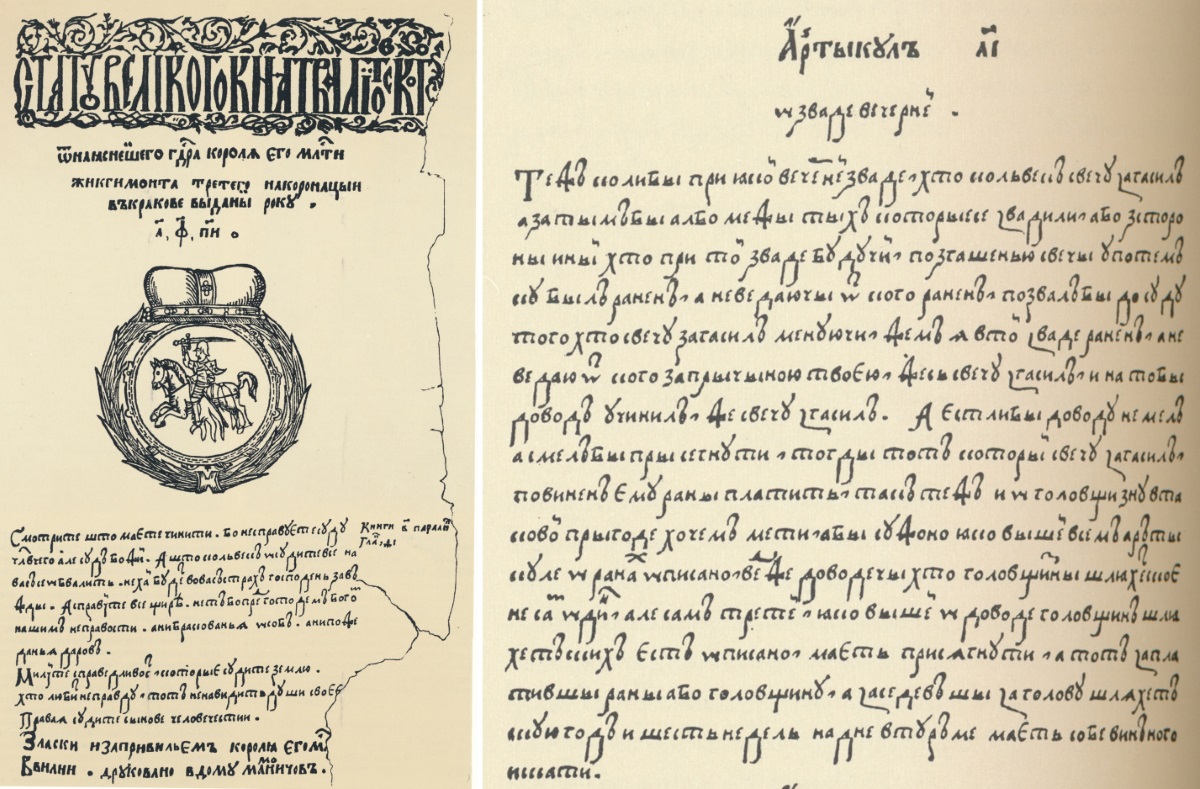 СТАТУТ ВЕЛИКОГО КНЯЗТВА ЛИТОВСКОГО
ѿ наяснейшего гд҃ра короля его мл҃ти
жикгимонта третего на коронацыи
въ кракове выданы року.
҂а҃, ф҃, пи҃.
Смотрите што маете чинити. бо не справуете суду
чл҃вчего але судъ божий. А што кольвекъ ѡсудите все на
васъ се ѡбвалить. нехай будеть во васъ страхъ господень завъ
жды. А справуйте все щире. несть бо пред господемъ богом
нашимъ неправости. ани бракованья ѡсобъ. ани пожа
данья даровъ.
Книги в҃ паралип
Гла, ѳ҃і
Милуйте справедливость которые судите землю.
хто любить неправду тотъ ненавидить души своее
Правая судите сынове человечестии.
Зласки и за привильемъ короля его млсти
Ввилни. друковано вдому мамоничовъ.
Артыкулъ л҃і
ѡ зваде вечерней.
Тежъ коли бы при якой вечерней зваде, хто кольвекъ свечу загасилъ
а затымъ бы албо межы тыхъ которые се звадили або з сторо
ны иный хто при той зваде будучий, по згашенью свечы у потемъ
ку былъ раненъ, а не ведаючы ѿ кого раненъ, позвалъ бы до суду
того хто свечу загасилъ менуючи, жемъ я в той зваде раненъ, а не
ведаю ѿ кого за прычыною твоею, жесь свечу згасилъ, и на то бы
доводъ учинилъ, же свечу згасилъ. А естли бы доводу не мелъ
а смелъ бы прысегнути, тогды тотъ который свечу згасилъ,
повиненъ ему раны платить, такъ тежъ и ѡ головщизну в та
ковой прыгоде хочем мети, абы сужоно яко вышей в семъ арты
куле ѡ ранах ѡписано, ведже доводечы хто головщины шляхетское
не сам ѡдин, але самъ третей, яко вышей ѡ доводе головщинъ шля
хетскихъ есть ѡписано, маеть присягнути, а тотъ запла
тившы раны або головщину, а заседевъшы за голову шляхетъ
скую годъ и шесть недель на дне в турме маеть собе винъного
искати.